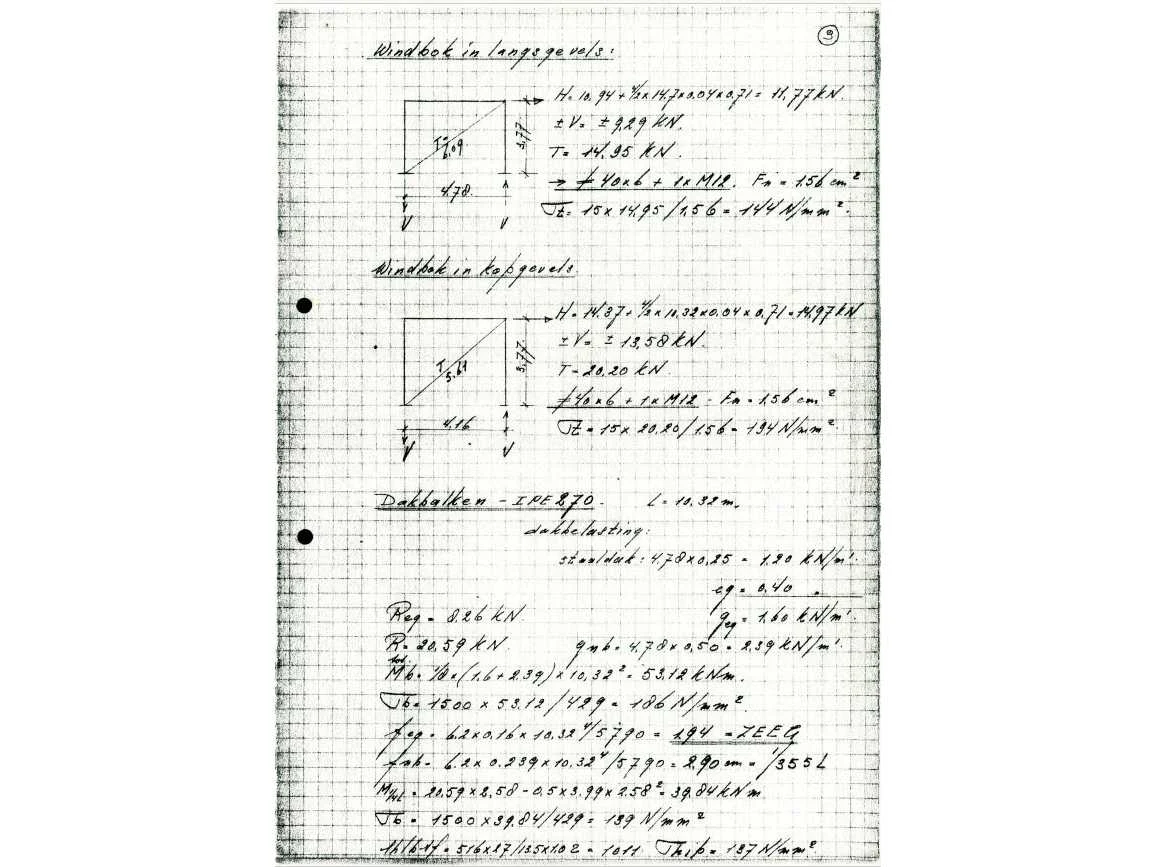 9
Windbok in langsgevels:
H= 10,94 + 1/2x14,7x0,04x0,71 = 11,77 kN.
± V= ± 9,29 kN.
T= 14,95 kN.
→ ≠ 40x6 + 1xM12. Fn = 1,56 cm²
σt= 15x14,95/1,56 = 144 N/mm².
T=
6,09
3,77
4,78
V V
Windbok in kopgevels.
H= 14,37+ 1/2x10,32x0,04x0,71=14,97kN
± V= ± 13,58 kN.
T= 20,20 kN.
≠ 40x6 + 1xM12 - Fn = 1,56 cm²
σt = 15x 20,20/1,56 = 194 N/mm².
T
5,61
3,77
4,16
V V
Dakbalken - IPE 270. L= 10,32 m.
dakbelasting:
staaldak: 4,78x0,25 = 1,20 kN/m'.
eg = 0,40 "
Reg = 8,26 kN. qeg = 1,60 kN/m'
R tot. = 20,59 kN. qnb= 4,78x0,50 = 2,39 kN/m'.
Mb= 1/8x(1,6+2,39)x10,32² = 53,12 kNm.
σb= 1500x53,12/429 = 186 N/mm².
feg = 6,2x0,16x10,32⁴/5790 = 1,94 = ZEEG
fnb= 6,2x0,239x10,32⁴/5790 = 2,90 cm = 1/355 L
= 20,59x2,58 - 0,5x3,99x2,58² = 39,84 kNm.
σb = 1500x39,84/429 = 139 N/mm²
= 516x27/13,5x1,02 = 1011 = 137 N/mm².